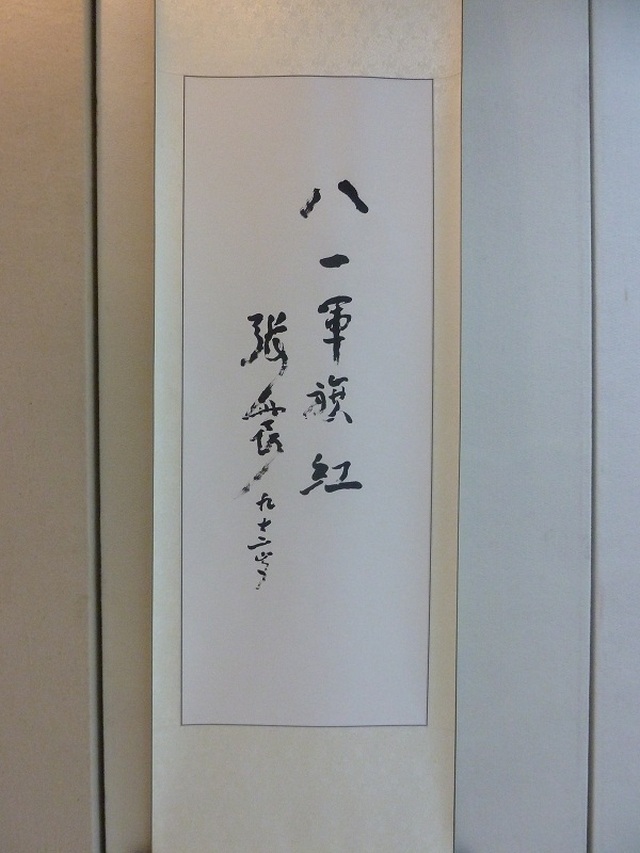 八一軍旗紅
張震 九十二岁